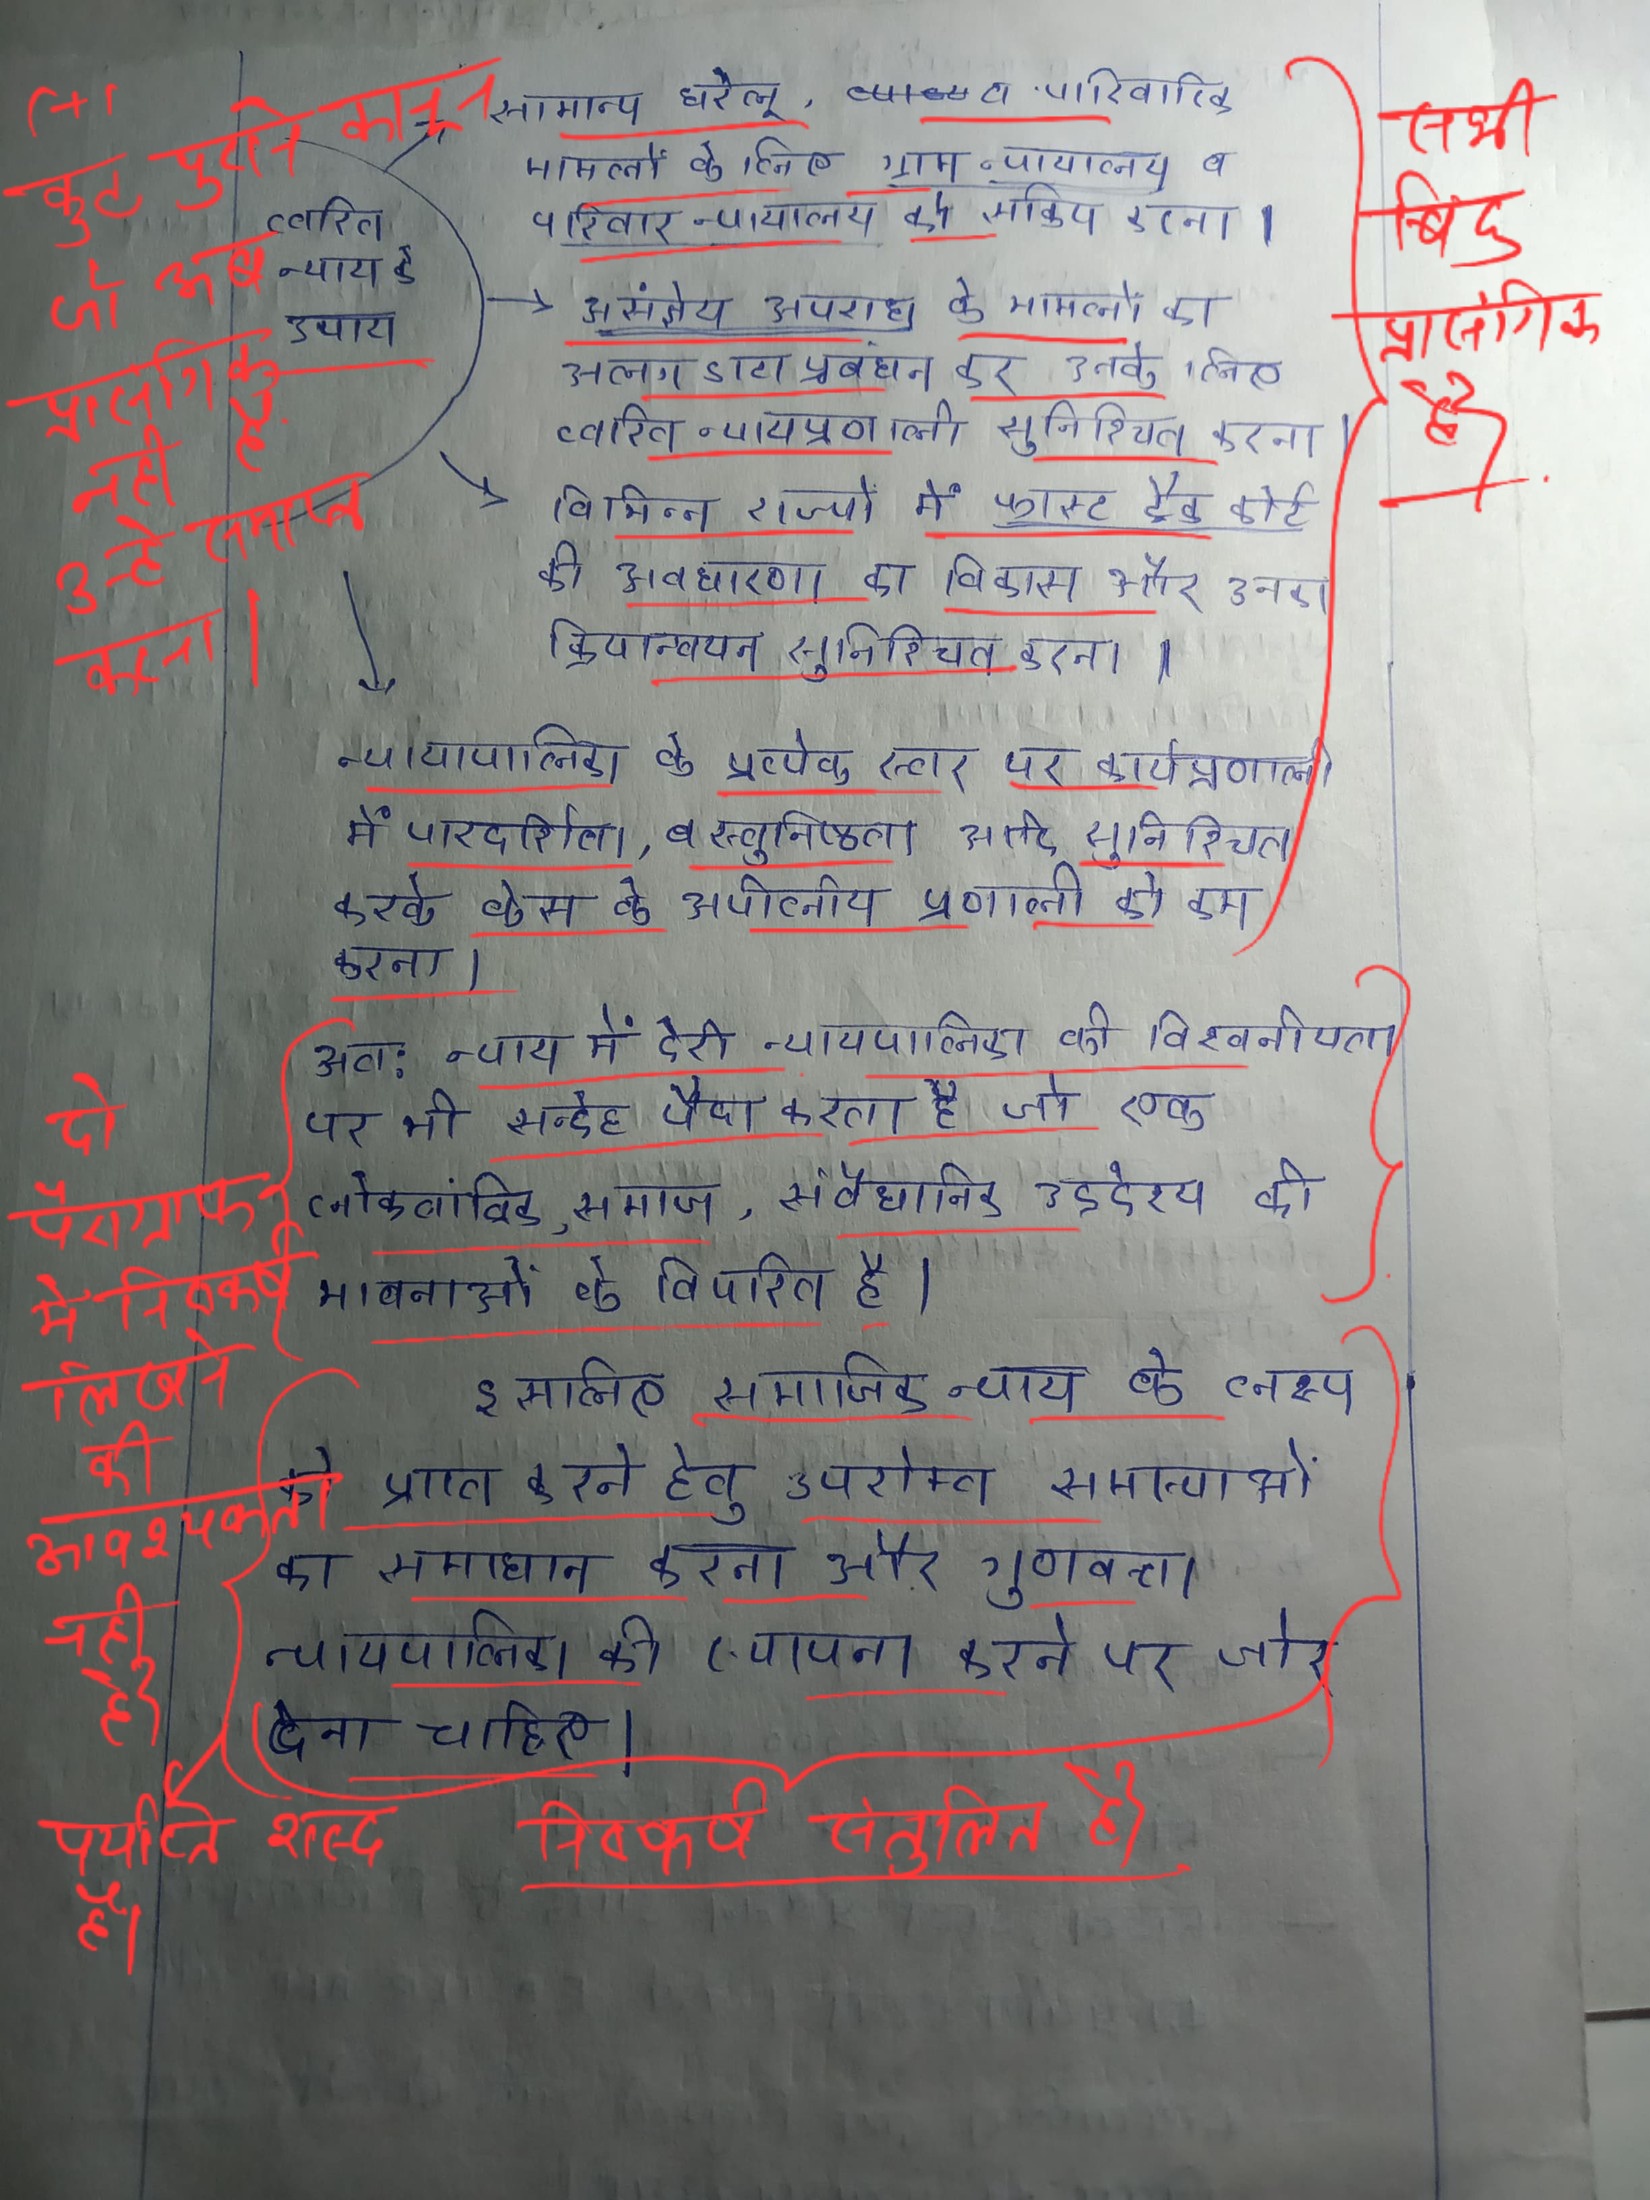 सामान्य घरेलू, पारिवारिक
मामलों के लिए ग्राम न्यायालय व
परिवार न्यायालय को सक्रिय करना।
त्वरित
न्याय के
उपाय
→ असंज्ञेय अपराध के मामलों का
अलग डाटा प्रबंधन कर उनके लिए
त्वरित न्यायप्रणाली सुनिश्चित करना।
विभिन्न राज्यों में फास्ट ट्रैक कोर्ट
की अवधारणा का विकास और उनका
क्रियान्वयन सुनिश्चित करना।
न्यायापालिका के प्रत्येक स्तर पर कार्यप्रणाली
में पारदर्शिता, वस्तुनिष्ठता आदि सुनिश्चित
करके केस के अपीलीय प्रणाली को कम
करना।
अतः न्याय में देरी न्यायपालिका की विश्वनीयता
पर भी सन्देह पैदा करता है जो एक
लोकतांत्रिक, समाज, संवैधानिक उद्देश्य की
भावनाओं के विपरित है।
इसलिए समाजिक न्याय के लक्ष्य
को प्राप्त करने हेतु उपरोक्त समस्याओं
का समाधान करना और गुणवत्ता
न्यायपालिका की स्थापना करने पर जोर
देना चाहिए।
कुछ पुराने कानून
जो अब
प्रासंगिक
नहीं हैं
उन्हें समाप्त
करना।
सभी
बिंदु
प्रासंगिक
हैं
दो
पैराग्राफ
में निष्कर्ष
लिखने
की
आवश्यकता
नहीं
है
पर्याप्त शब्द
हैं।
निष्कर्ष संतुलित है